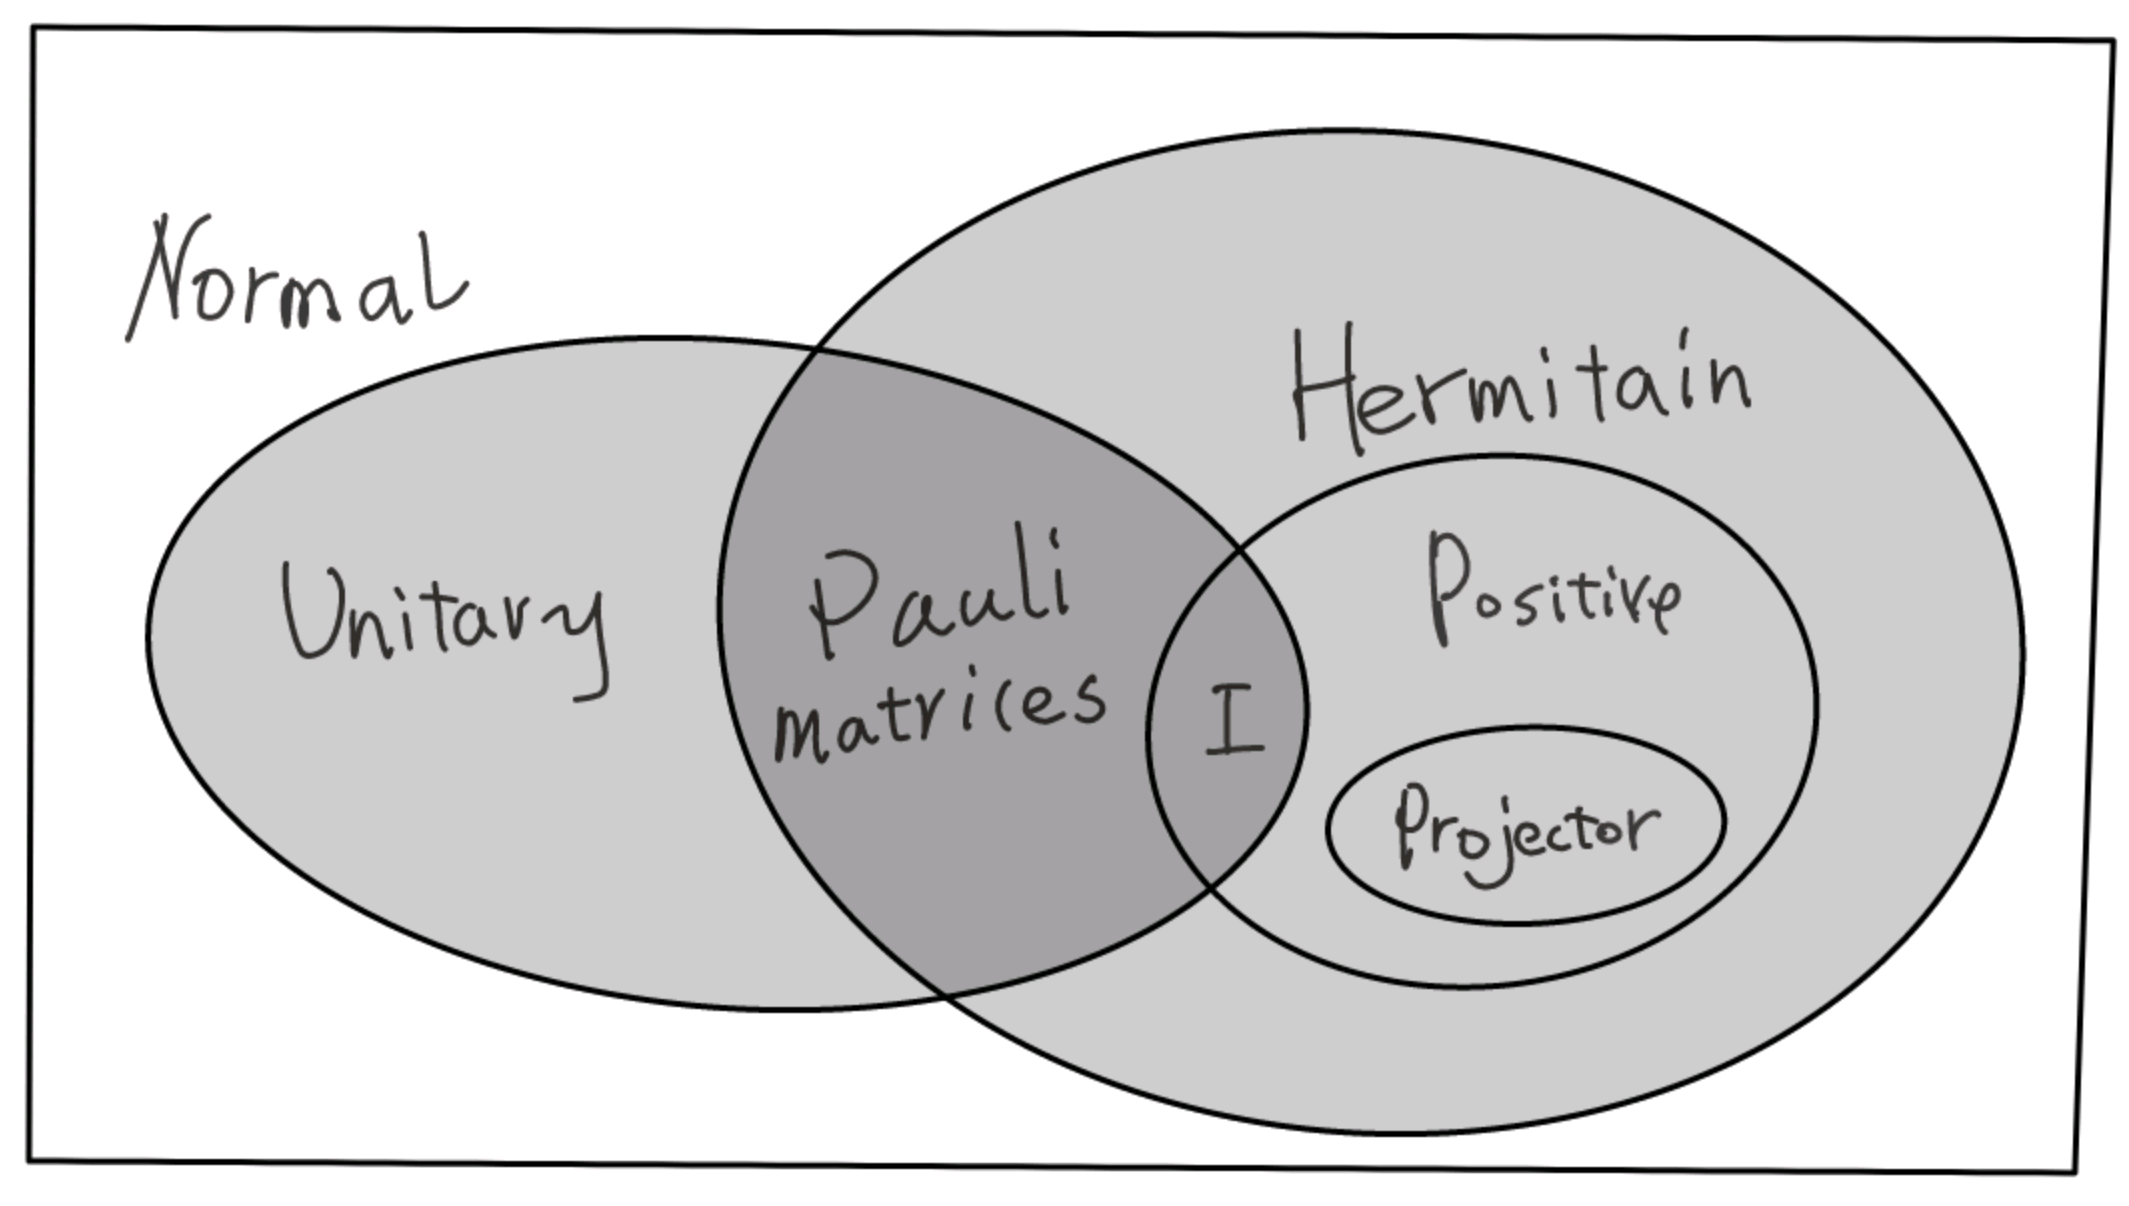 Normal
Hermitain
Unitary
Pauli
matrices
I
Positive
Projector